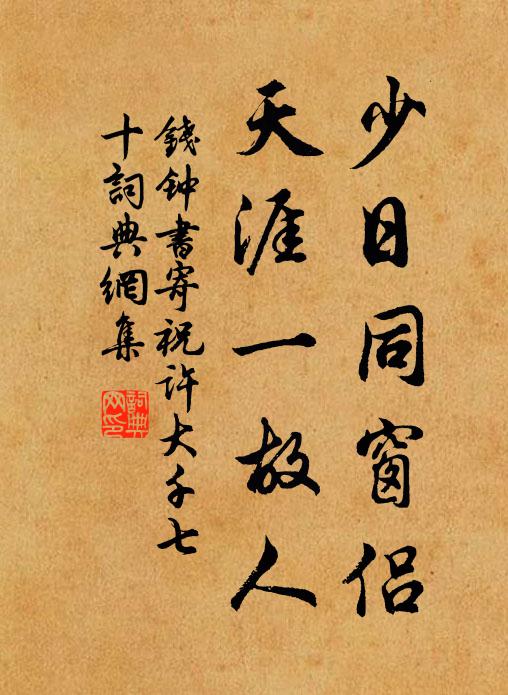 少日同窗侣
天涯一故人
錢钟書寄祝许大千七
十詞典網集
詞典
网印